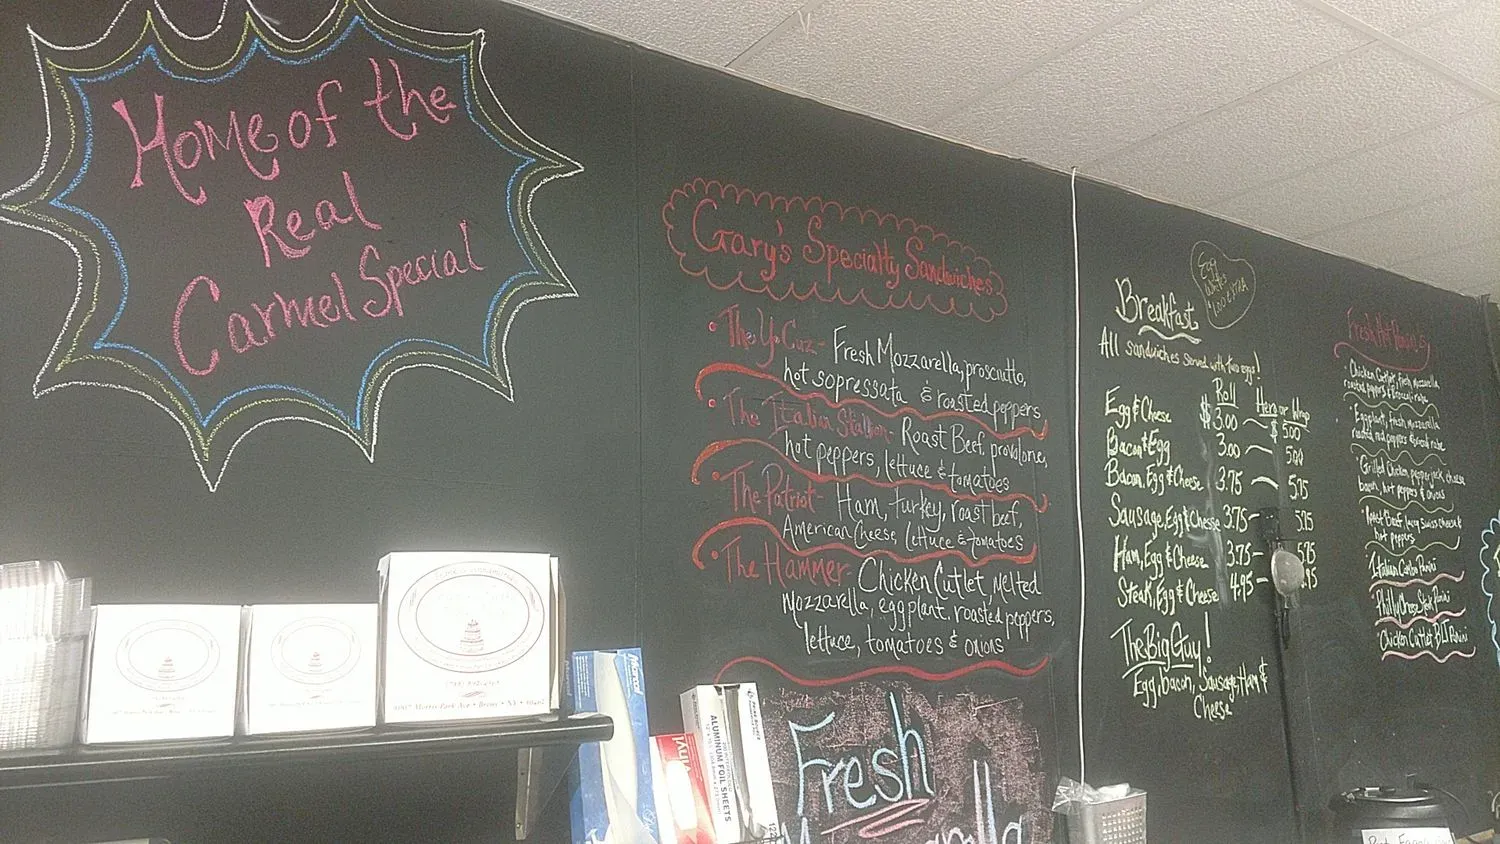 Home of the
Real
Carmel Special
Gary's Specialty Sandwiches
The Yo Cuz - Fresh Mozzarella, prosciutto,
hot sopressata & roasted peppers
The Italian Stallion - Roast Beef, provolone,
hot peppers, lettuce & tomatoes
The Patriot - Ham, turkey, roast beef,
American Cheese, lettuce & tomatoes
The Hammer - Chicken Cutlet, Melted
Mozzarella, eggplant, roasted peppers,
lettuce, tomatoes & onions
Fresh
Egg
Whites
1.00 extra
Breakfast
All sandwiches served with two eggs!
Roll Hero or Wrap
Egg & Cheese $3.00 $5.00
Bacon & Egg 3.00 5.00
Bacon, Egg & Cheese 3.75 5.75
Sausage, Egg & Cheese 3.75 5.75
Ham, Egg & Cheese 3.75 5.75
Steak, Egg & Cheese 4.95
The Big Guy!
Egg, Bacon, Sausage, Ham &
Cheese
Fresh Hot Paninis
Chicken Cutlet, fresh mozzarella
roasted peppers & broccoli rabe
Eggplant, fresh mozzarella
roasted red peppers
Grilled Chicken, pepperjack cheese
bacon, hot peppers & onions
Roast Beef, swiss cheese &
hot peppers
Italian Combo Panini
Philly Cheese Steak Panini
Chicken Cutlet BLT Panini
Morris Park Ave • Bronx • NY
Marcal
Vinyl
ALUMINUM FOIL SHEETS